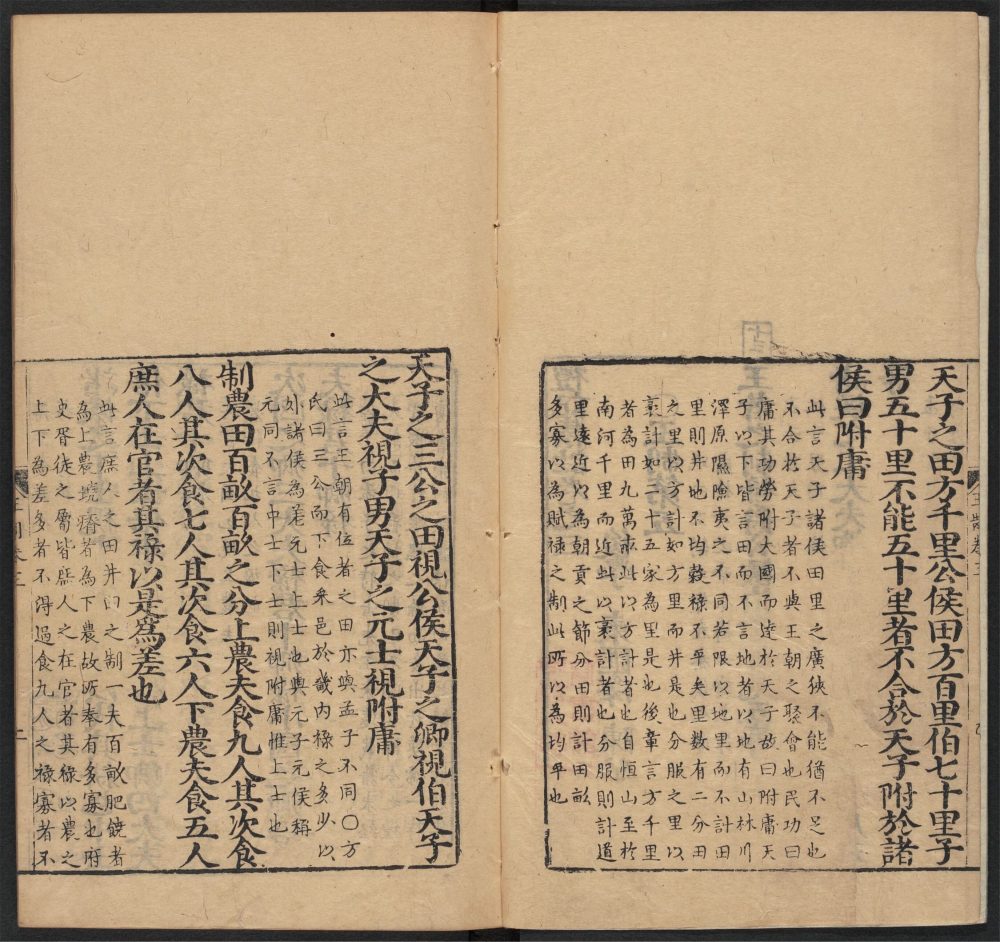 天子之田方千里公侯田方百里伯七十里子
男五十里不能五十里者不合於天子附於諸
侯曰附庸
此言天子諸侯田里之廣狹不能猶不足也
不合於天子者不與王朝之聚會也民功曰
庸其功勞附大國而達於天子故曰附庸天
子以下皆言田而不言地者以地有山林川
澤原隰險夷之不同若限以地里而不計田
里則井地不均穀祿不平矣里數有二分田
之里以方計如方里而井是也分服之里以
袤計如二十五家為里是也後章言方千里
者為田九萬畝此以方計者也自恒山至於
南河千里而近此以袤計者也分服則計道
里遠近以為朝貢之節分田則計田畝
多寡以為賦祿之制此所以為均平也
天子之三公之田視公侯天子之卿視伯天子
之大夫視子男天子之元士視附庸
此言王朝有位者之田亦與孟子不同〇方
氏曰三公而下食采邑於畿内祿之多少以
外諸侯為差元士上士也與元子元侯稱
元同不言中士下士則視附庸惟上士也
制農田百畝百畝之分上農夫食九人其次食
八人其次食七人其次食六人下農夫食五人
庶人在官者其祿以是為差也
此言庶人之田井田之制一夫百畝肥饒者
為上農墝瘠者為下農故所奉有多寡也府
史胥徒之屬皆庶人之在官者其祿以農之
上下為差多者不得過食九人之祿寡者不